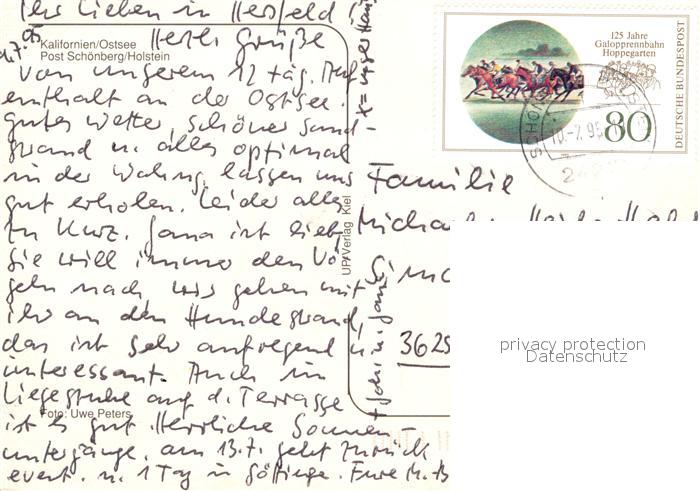 Ihr Lieben in Hersfeld!
7.95 Herzl. Grüße
Kalifornien/Ostsee
Post Schönberg/Holstein
von unserem 12 täg. Auf-
enthalt an der Ostsee.
gutes Wetter, schöner Sand-
strand u. alles optimal
in der Wohng. lassen uns
gut erholen. Leider alles
zu kurz. Jana ist lieb,
sie will immer den Vö-
geln nach. wir gehen mit
ihr an den Hundestrand,
das ist sehr aufregend u.
interessant. Auch im
Liegestuhl auf d. Terrasse
ist es gut. Herrliche Sonnen-
untergänge. am 13.7. geht zurück
event. n. 1 Tag in Göttinge. Eure M.
Foto: Uwe Peters
UP-Verlag Kiel
125 Jahre
Galopprennbahn
Hoppegarten
DEUTSCHE BUNDESPOST
80
10.-7.95
Familie
3625
privacy protection
Datenschutz